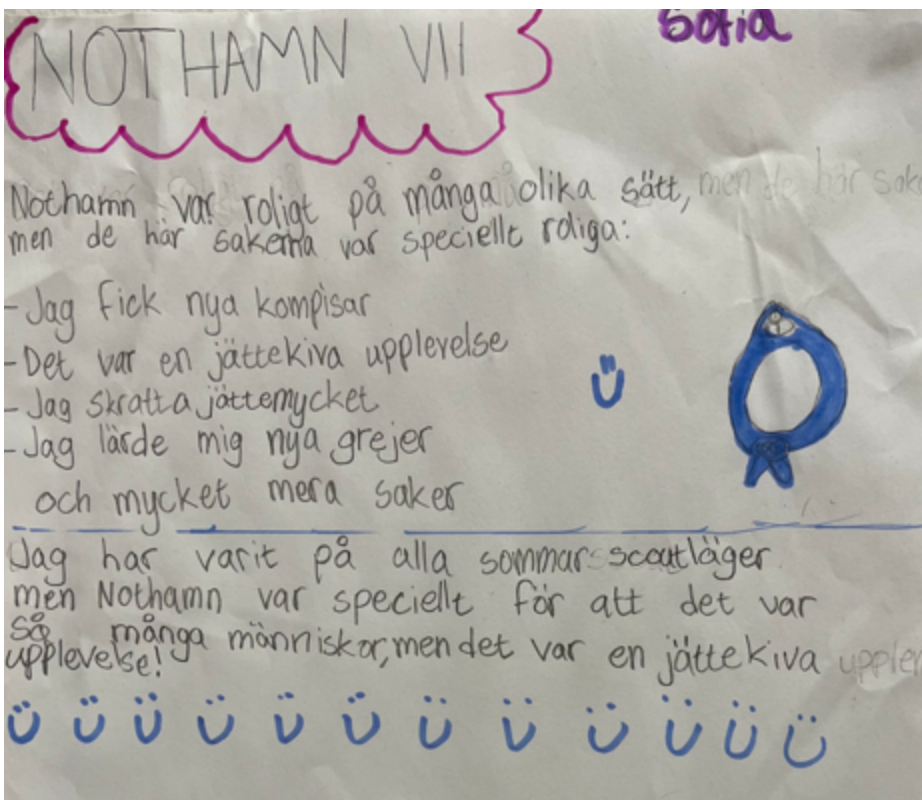 NOTHAMN VII
Sofia
Nothamn var roligt på många olika sätt, men de här sak
men de här sakerna var speciellt roliga:
- Jag fick nya kompisar
- Det var en jättekiva upplevelse
- Jag skratta jättemycket
- Jag lärde mig nya grejer
och mycket mera saker
Jag har varit på alla sommar scoutläger
men Nothamn var speciellt för att det var
så många människor, men det var en jättekiva upplev
upplevelse!